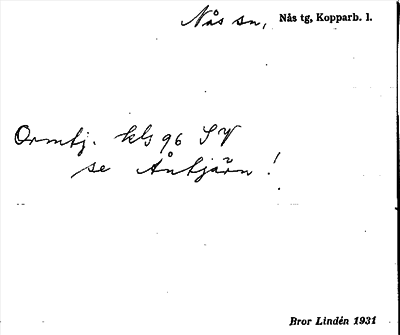 Nås sn, Nås tg, Kopparb. l.
Ormtj. kls 96 SV
se Åntjärn!
Bror Lindén 1931